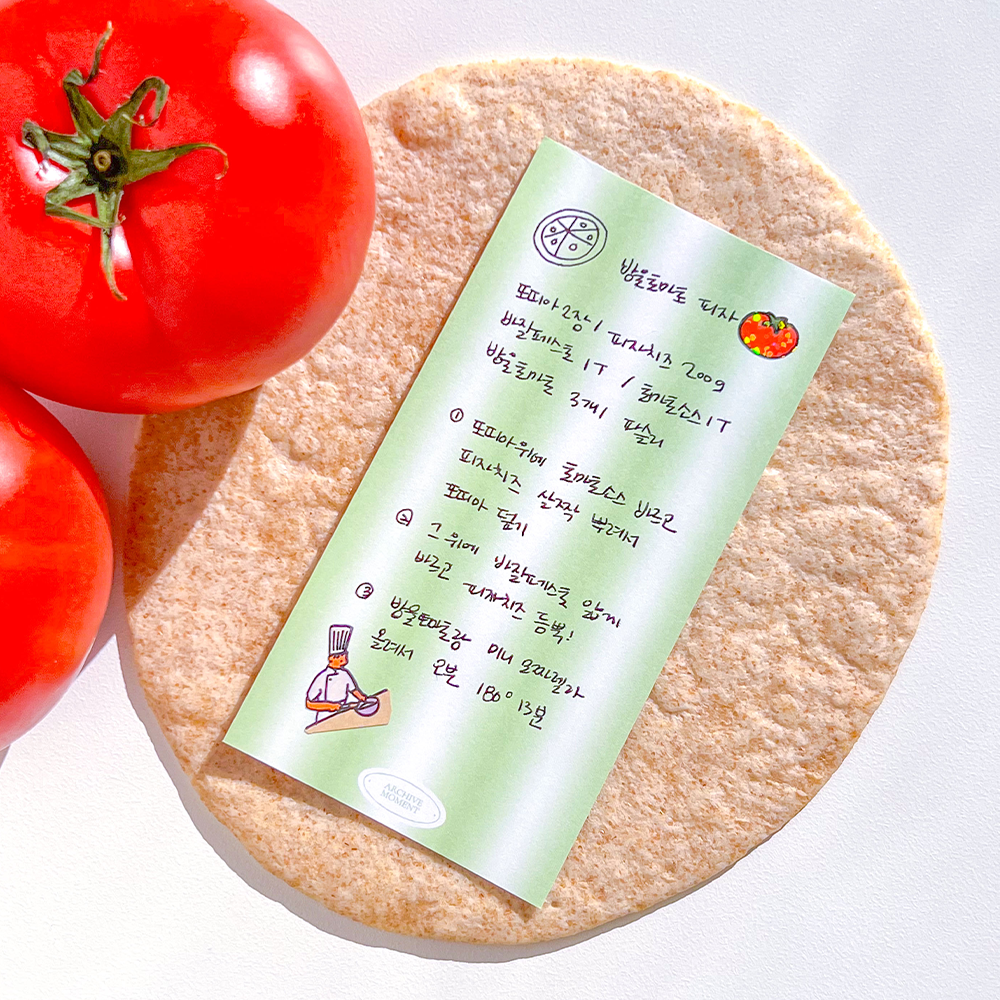 방울토마토 피자
또띠아 2장 / 피자치즈 200g
바질페스토 1T / 토마토소스 1T
방울토마토 3개 / 파슬리
① 또띠아 위에 토마토소스 바르고
피자치즈 살짝 뿌려서
또띠아 덮기
② 그 위에 바질페스토 얇게
바르고 피자치즈 듬뿍!
③ 방울토마토랑 미니 모짜렐라
올려서 오븐 180° 13분
ARCHIVE
MOMENT